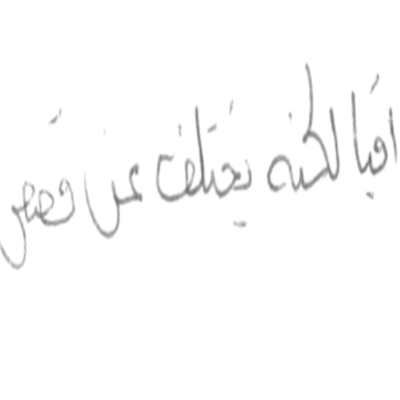 افيا لكنه يختلف عن قصص